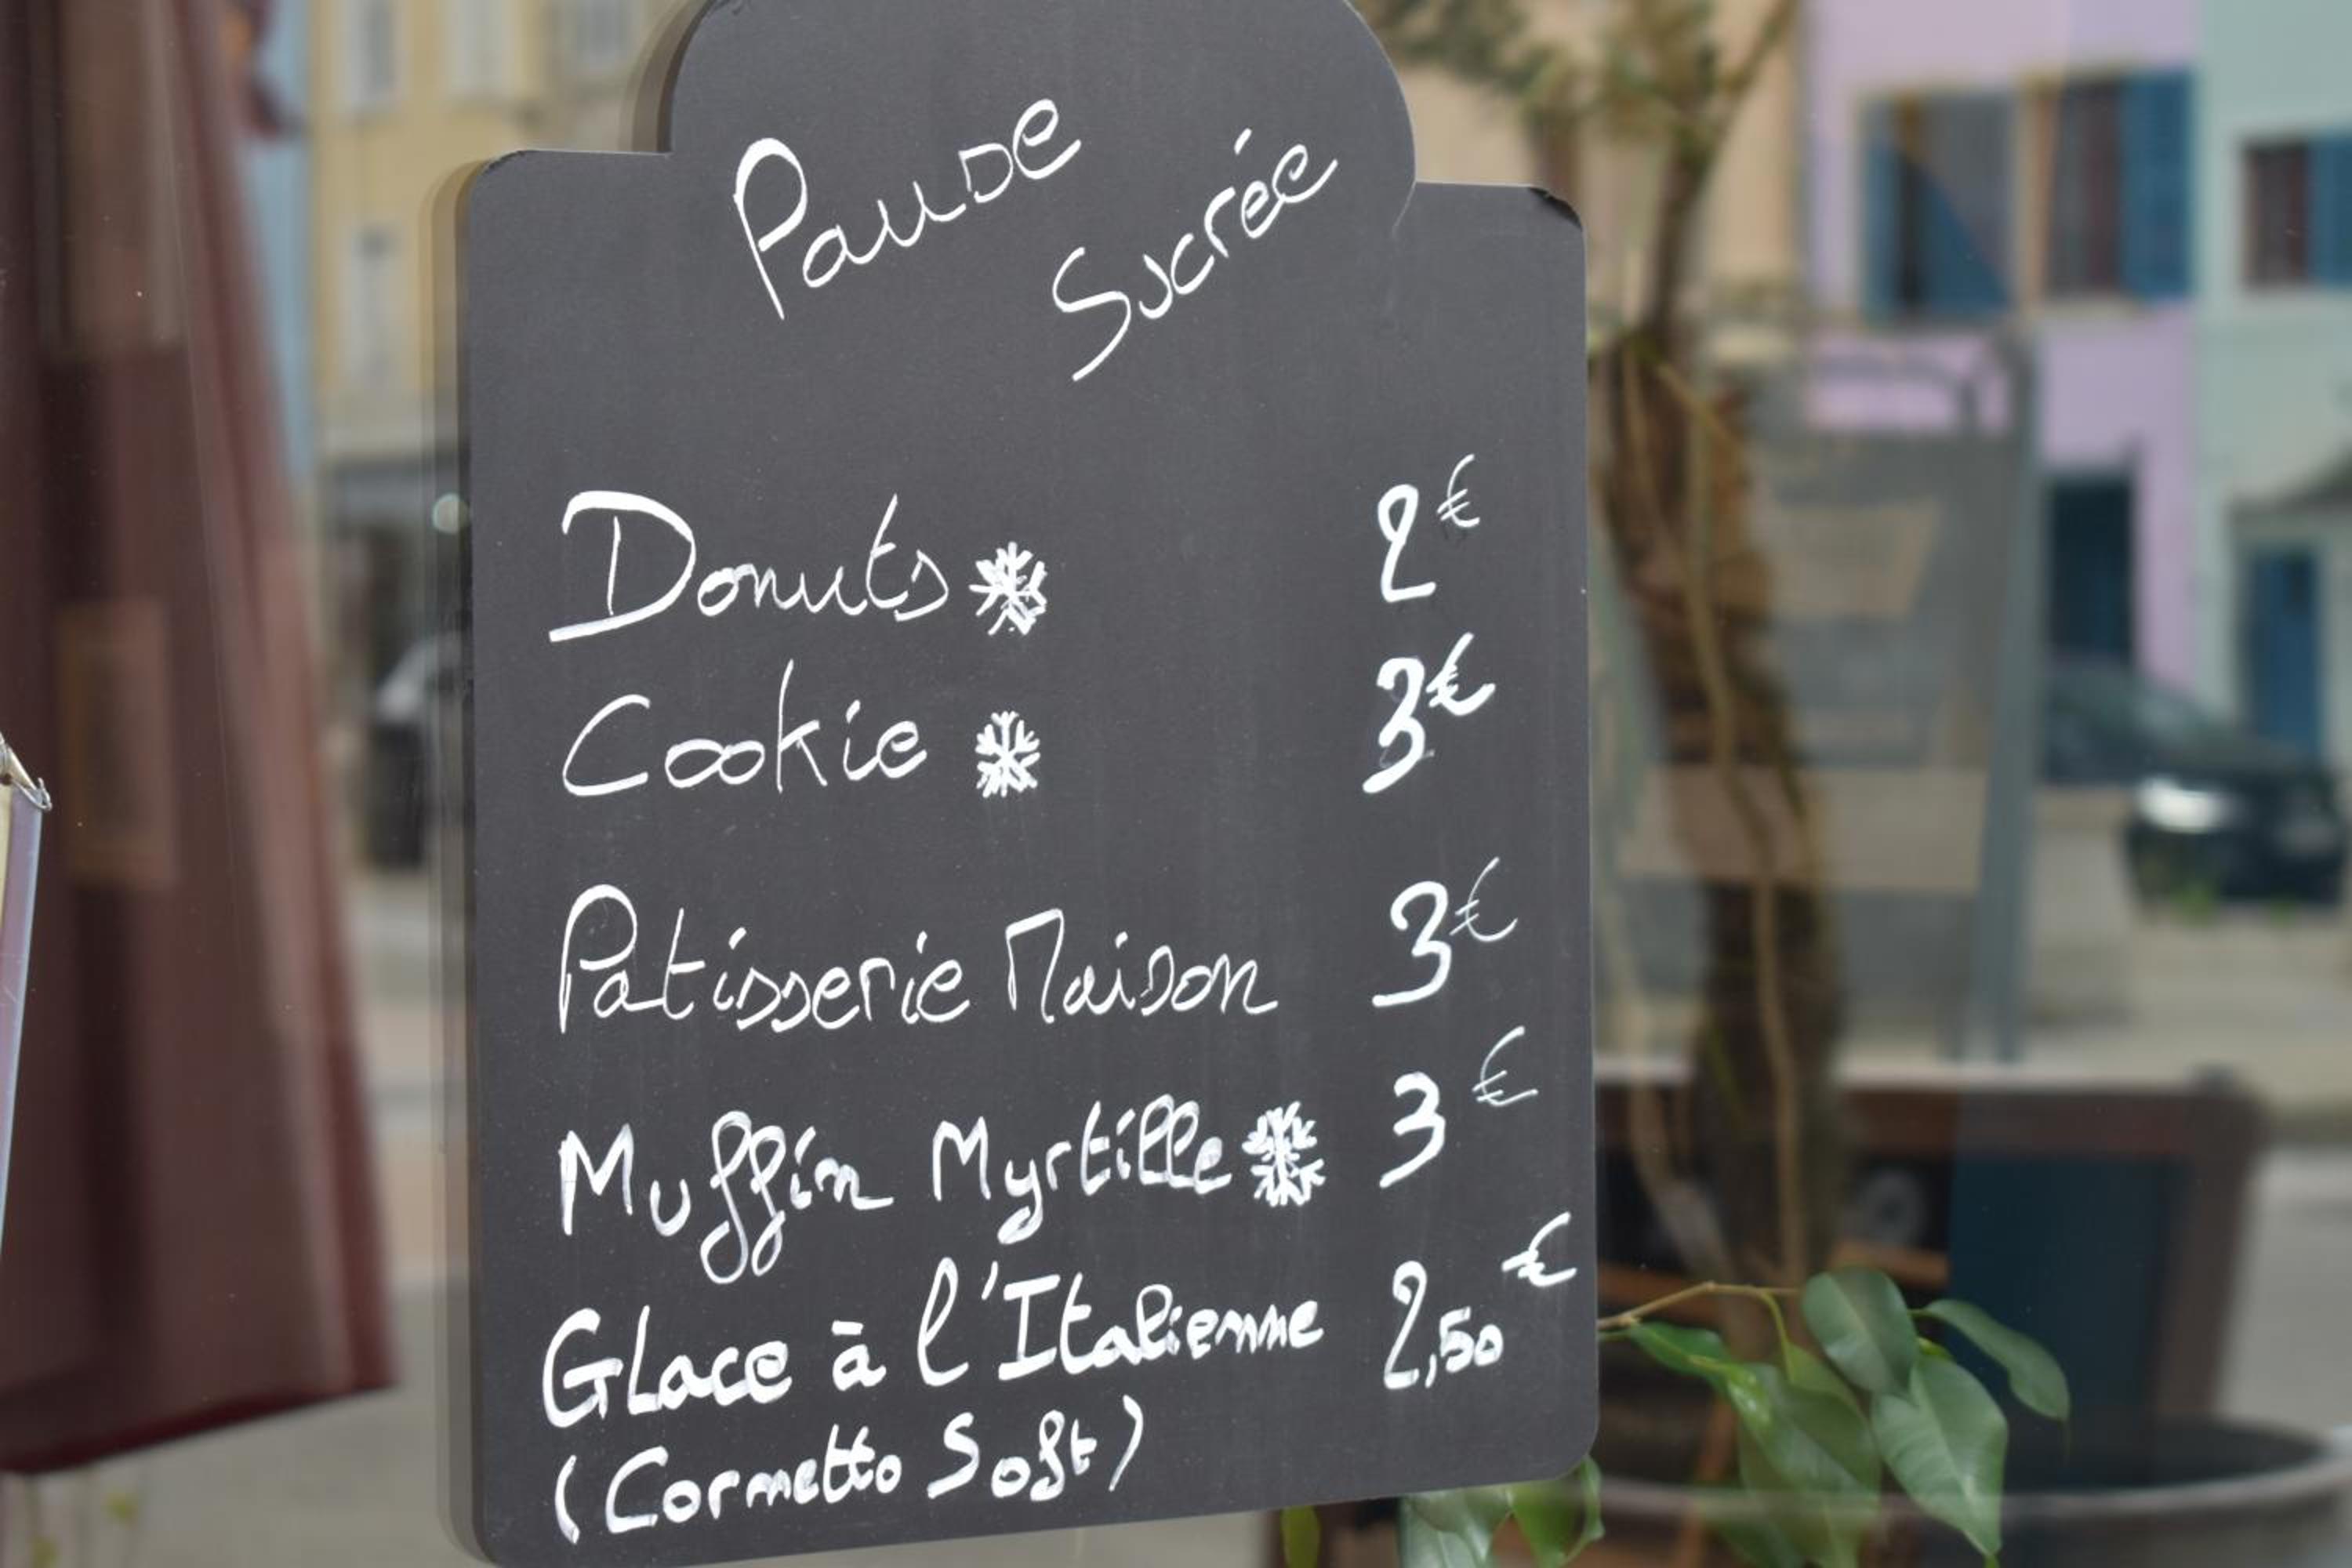 Pause
Sucrée
Donuts 2€
Cookie 3€
Patisserie Maison 3€
Muffin Myrtille 3€
Glace à l'Italienne 2,50€
(Cornetto Soft)